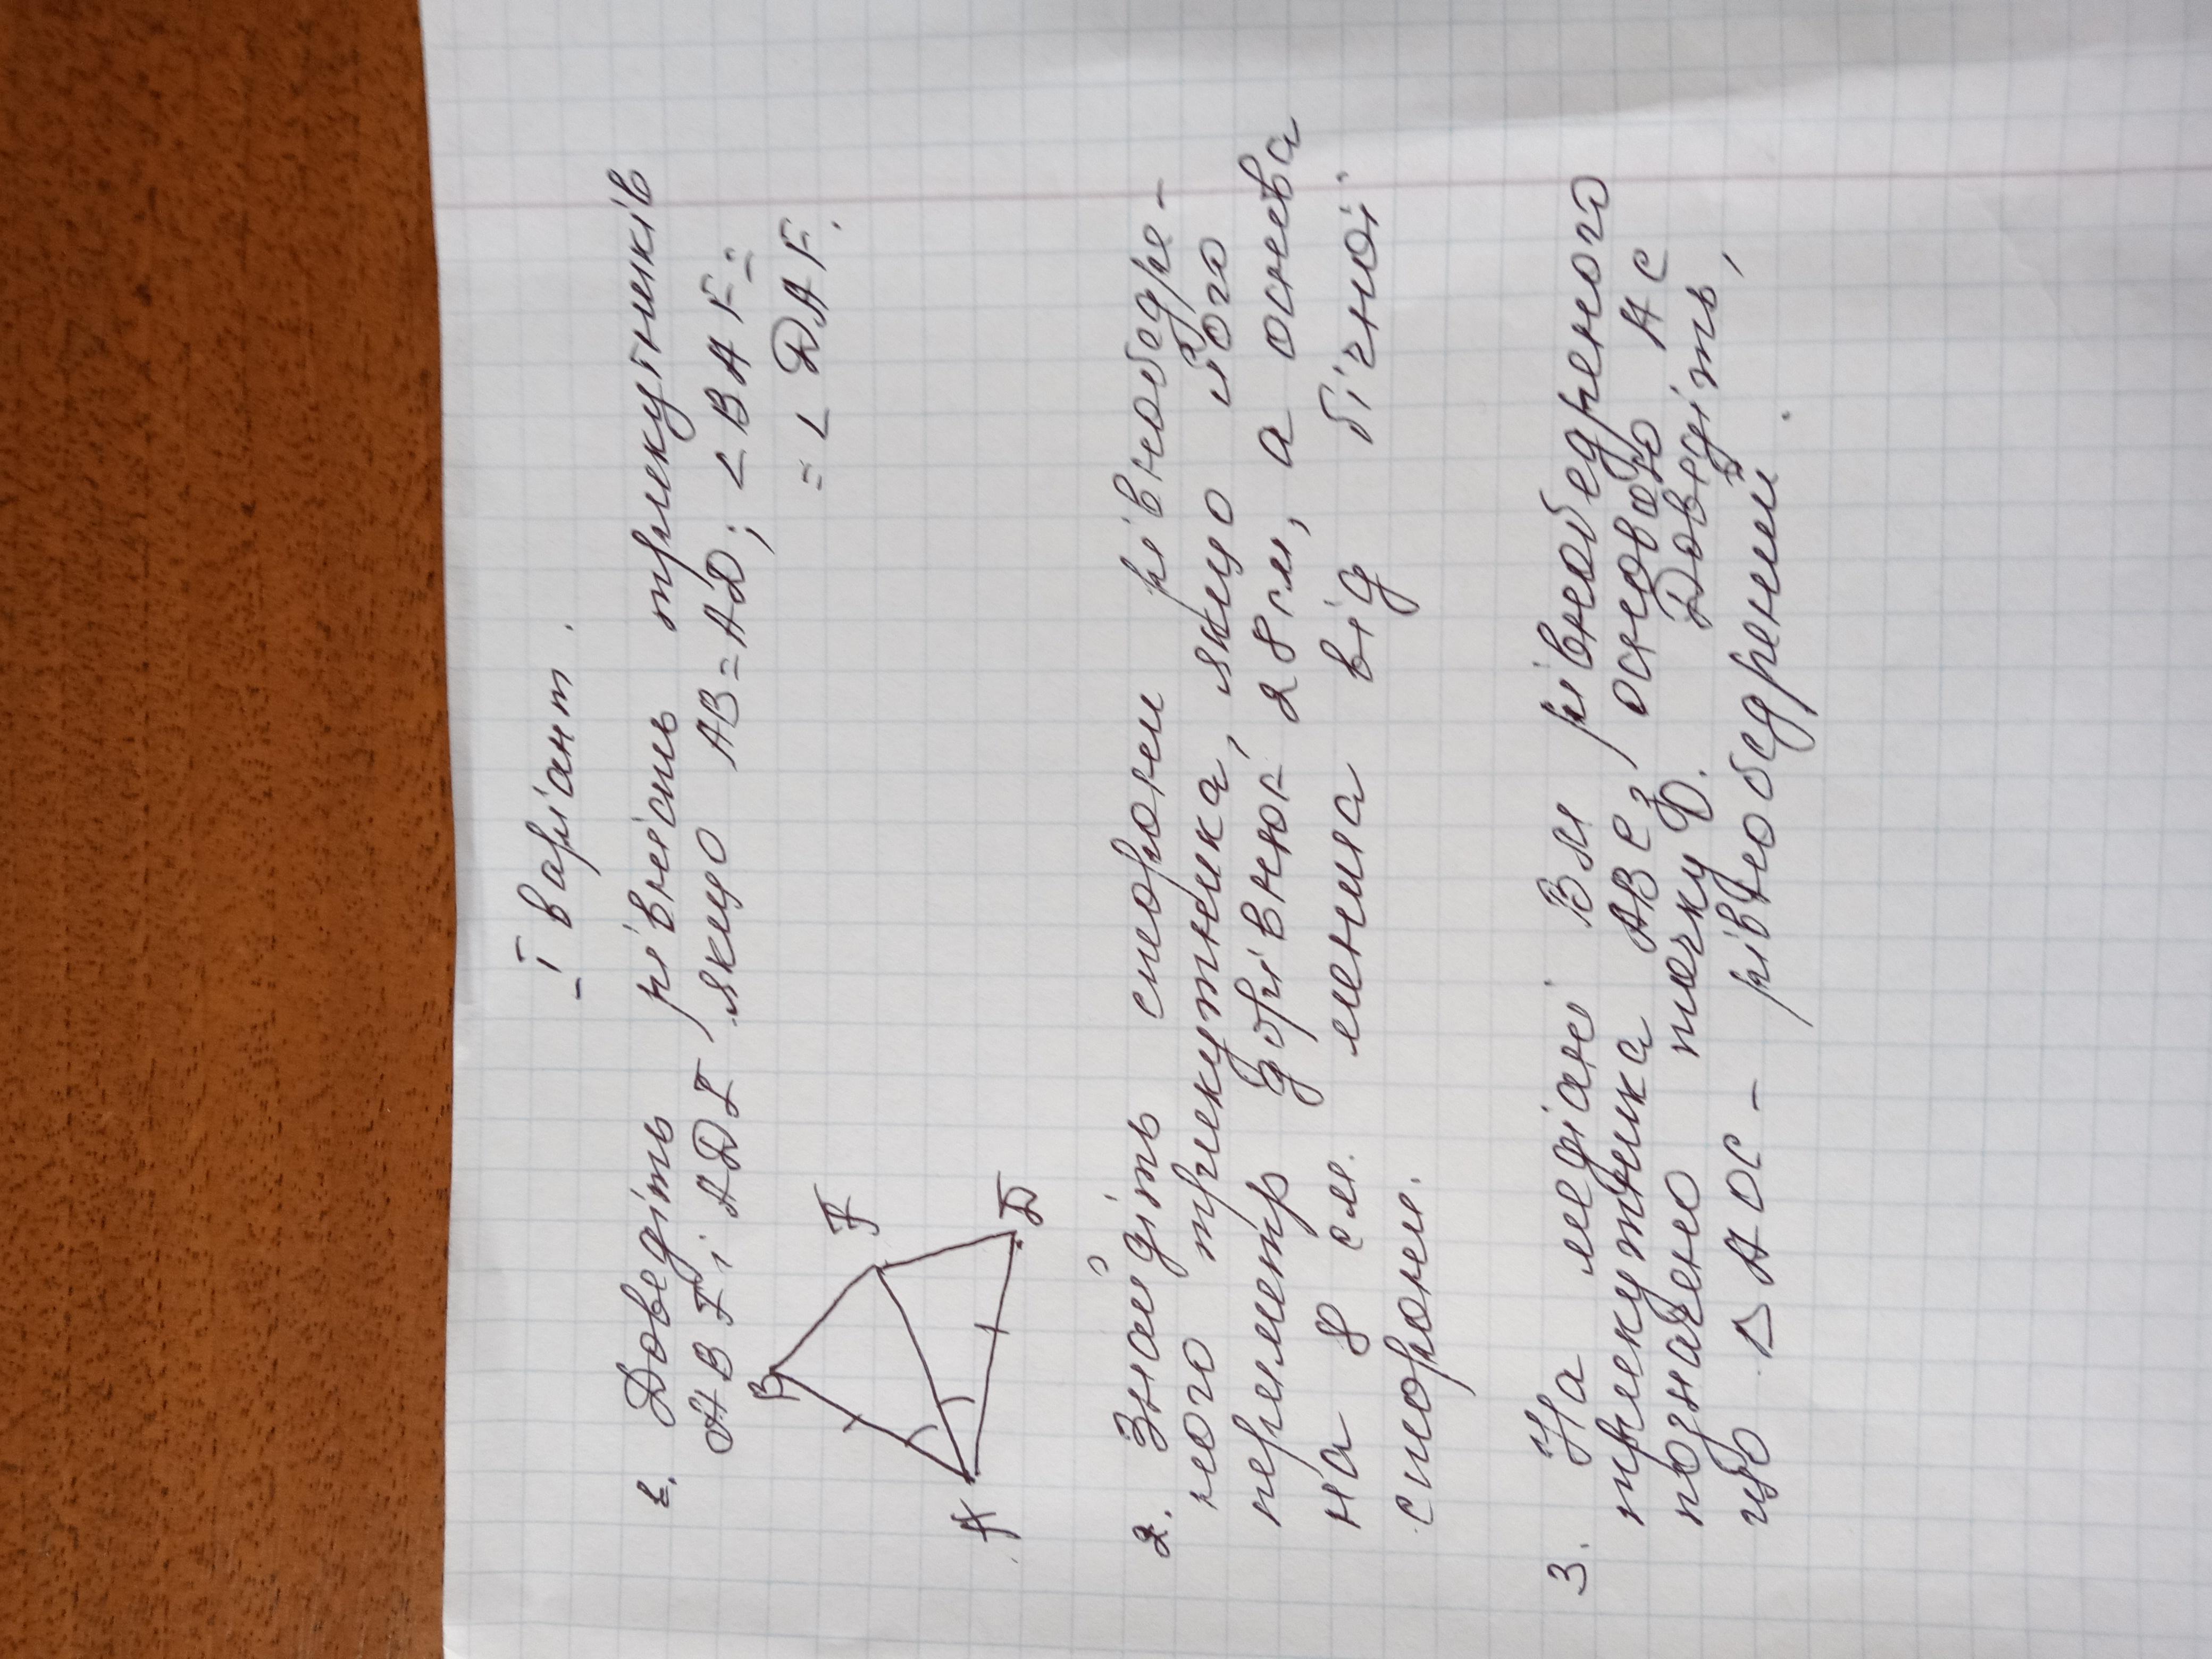 І варіант.
1. Доведіть рівність трикутників
ABF і ADF, якщо AB=AD; ∠BAF=
= ∠DAF.
B
F
A
D
2. Знайдіть сторони рівнобедре-
ного трикутника, якщо його
периметр дорівнює 28 см, а основа
на 8 см. менша від бічної
сторони.
3. На медіані BM рівнобедреного
трикутника ABC з основою AC
позначено точку D. Доведіть,
що ΔADC - рівнобедрений.